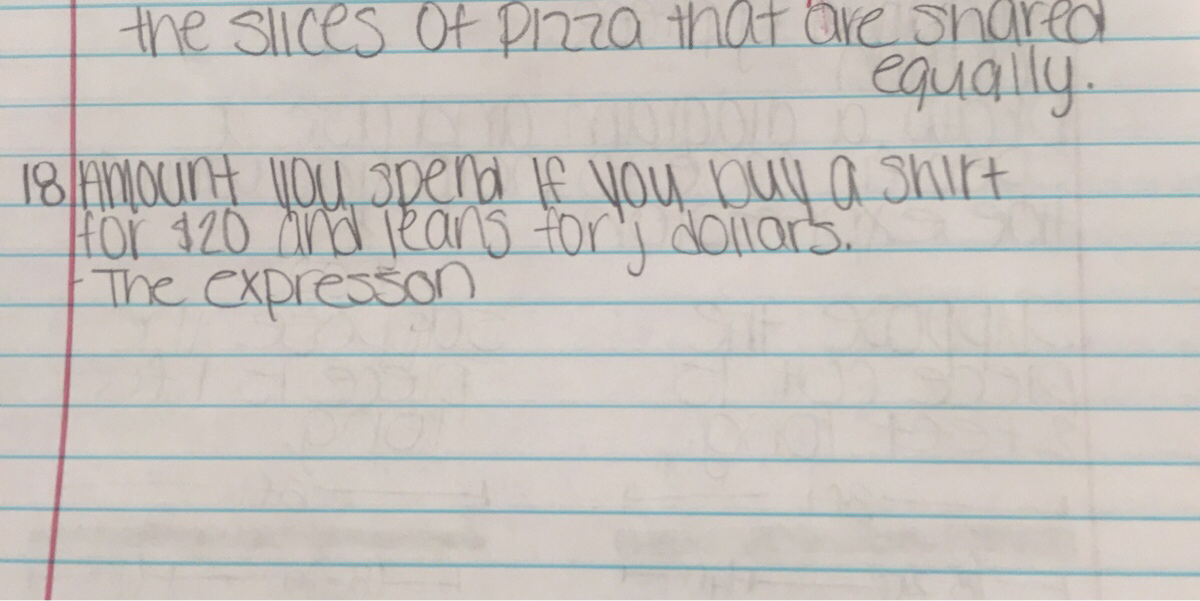 the slices of pizza that are shared
equally.
18 Amount you spend if you buy a shirt
for $20 and jeans for j dollars.
- The expresson